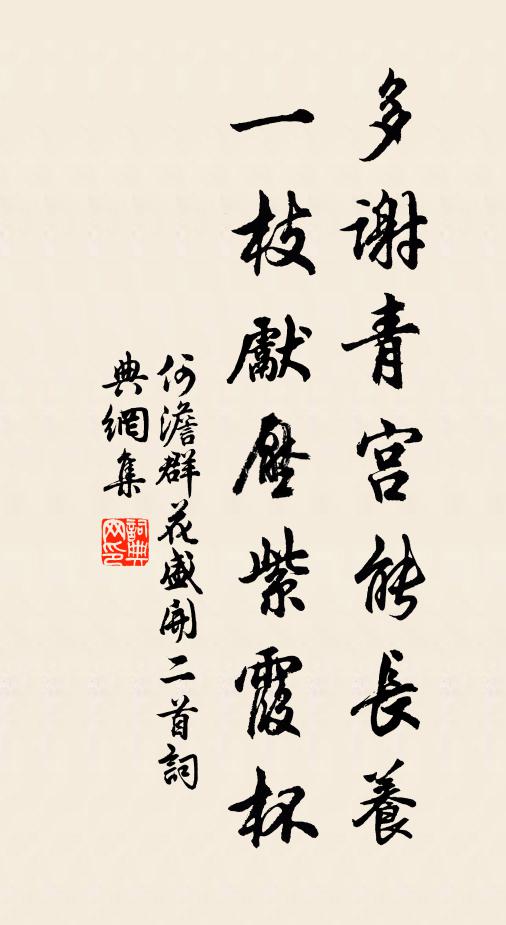 多謝青宮能長養
一枝獻壓紫霞杯
何澹群花盛開二首詞
典網集
詞典網印